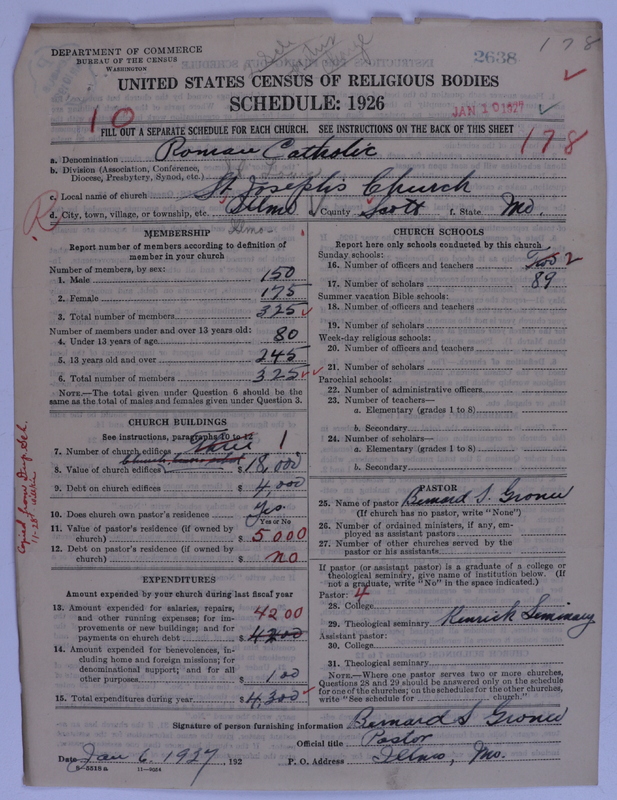 DEPARTMENT OF COMMERCE
BUREAU OF THE CENSUS
WASHINGTON
2638
178
UNITED STATES CENSUS OF RELIGIOUS BODIES
SCHEDULE: 1926
JAN 10 1927
10
FILL OUT A SEPARATE SCHEDULE FOR EACH CHURCH. SEE INSTRUCTIONS ON THE BACK OF THIS SHEET
178
a. Denomination Roman Catholic
b. Division (Association, Conference, Diocese, Presbytery, Synod, etc.) St. Louis
c. Local name of church St. Josephs Church
d. City, town, village, or township, etc. Illmo County Scott f. State Mo.
R
MEMBERSHIP
Report number of members according to definition of
member in your church
Number of members, by sex:
1. Male 150
2. Female 175
3. Total number of members 325
Number of members under and over 13 years old:
4. Under 13 years of age 80
5. 13 years old and over 245
6. Total number of members 325
NOTE.—The total given under Question 6 should be
same as the total of males and females given under Question 3.
CHURCH BUILDINGS
See instructions, paragraphs 10 to 12
7. Number of church edifices Three 1
8. Value of church edifices $ 18,000
9. Debt on church edifices $ 4,000
10. Does church own pastor's residence Yes
Yes or No
11. Value of pastor's residence (if owned by
church) $ 5000
12. Debt on pastor's residence (if owned by
church) $ no
EXPENDITURES
Amount expended by your church during last fiscal year
13. Amount expended for salaries, repairs,
and other running expenses; for im-
provements or new buildings; and for
payments on church debt $ 4200 4200
14. Amount expended for benevolences, in-
cluding home and foreign missions; for
denominational support; and for all
other purposes $ 100
15. Total expenditures during year $ 4,300
CHURCH SCHOOLS
Report here only schools conducted by this church
Sunday schools:
16. Number of officers and teachers Two 2
17. Number of scholars 89
Summer vacation Bible schools:
18. Number of officers and teachers
19. Number of scholars
Week-day religious schools:
20. Number of officers and teachers
21. Number of scholars
Parochial schools:
22. Number of administrative officers
23. Number of teachers—
a. Elementary (grades 1 to 8)
b. Secondary
24. Number of scholars—
a. Elementary (grades 1 to 8)
b. Secondary
PASTOR
25. Name of pastor Bernard S. Groner
(If church has no pastor, write "None")
26. Number of ordained ministers, if any, em-
ployed as assistant pastors
27. Number of other churches served by the
pastor or his assistants
If pastor (or assistant pastor) is a graduate of a college or
theological seminary, give name of institution below. (If
not a graduate, write "No" in the space indicated.)
Pastor: 4
28. College
29. Theological seminary Kenrick Seminary
Assistant pastor:
30. College
31. Theological seminary
NOTE.—Where one pastor serves two or more churches,
Questions 28 and 29 should be answered only on the schedule
for one of the churches; on the schedules for the other churches,
write "See schedule for church."
Signature of person furnishing information Bernard S Groner
Official title Pastor
Date Jan 6, 1927, 192 P. O. Address Illmo, Mo.
8-5518a 11-9054